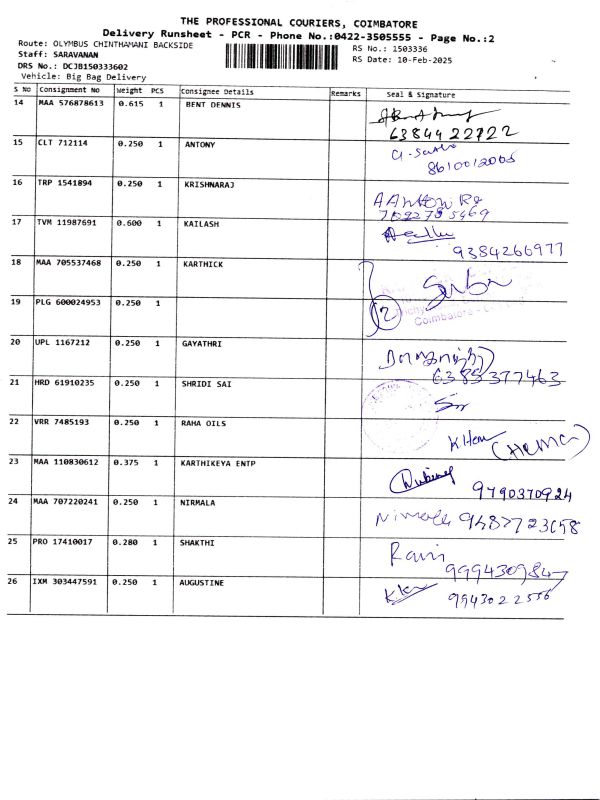 THE PROFESSIONAL COURIERS, COIMBATORE
Delivery Runsheet - PCR - Phone No.:0422-3505555 - Page No.:2
Route: OLYMBUS CHINTHAMANI BACKSIDE
Staff: SARAVANAN
DRS No.: DCJB150333602
Vehicle: Big Bag Delivery
RS No.: 1503336
RS Date: 10-Feb-2025
S No Consignment No Weight PCS Consignee Details Remarks Seal & Signature
14 MAA 576878613 0.615 1 BENT DENNIS
6384422722
15 CLT 712114 0.250 1 ANTONY
8610012005
16 TRP 1541894 0.250 1 KRISHNARAJ
17 TVM 11987691 0.600 1 KAILASH
9384266977
18 MAA 705537468 0.250 1 KARTHICK
19 PLG 600024953 0.250 1
2
Coimbatore
20 UPL 1167212 0.250 1 GAYATHRI
6385377463
21 HRD 61910235 0.250 1 SHRIDI SAI
22 VRR 7485193 0.250 1 RAHA OILS
(Hema)
23 MAA 110830612 0.375 1 KARTHIKEYA ENTP
9790370924
24 MAA 707220241 0.250 1 NIRMALA
Nirmala 9487723058
25 PRO 17410017 0.280 1 SHAKTHI
Ravi
9994309847
26 IXM 303447591 0.250 1 AUGUSTINE
9943022556